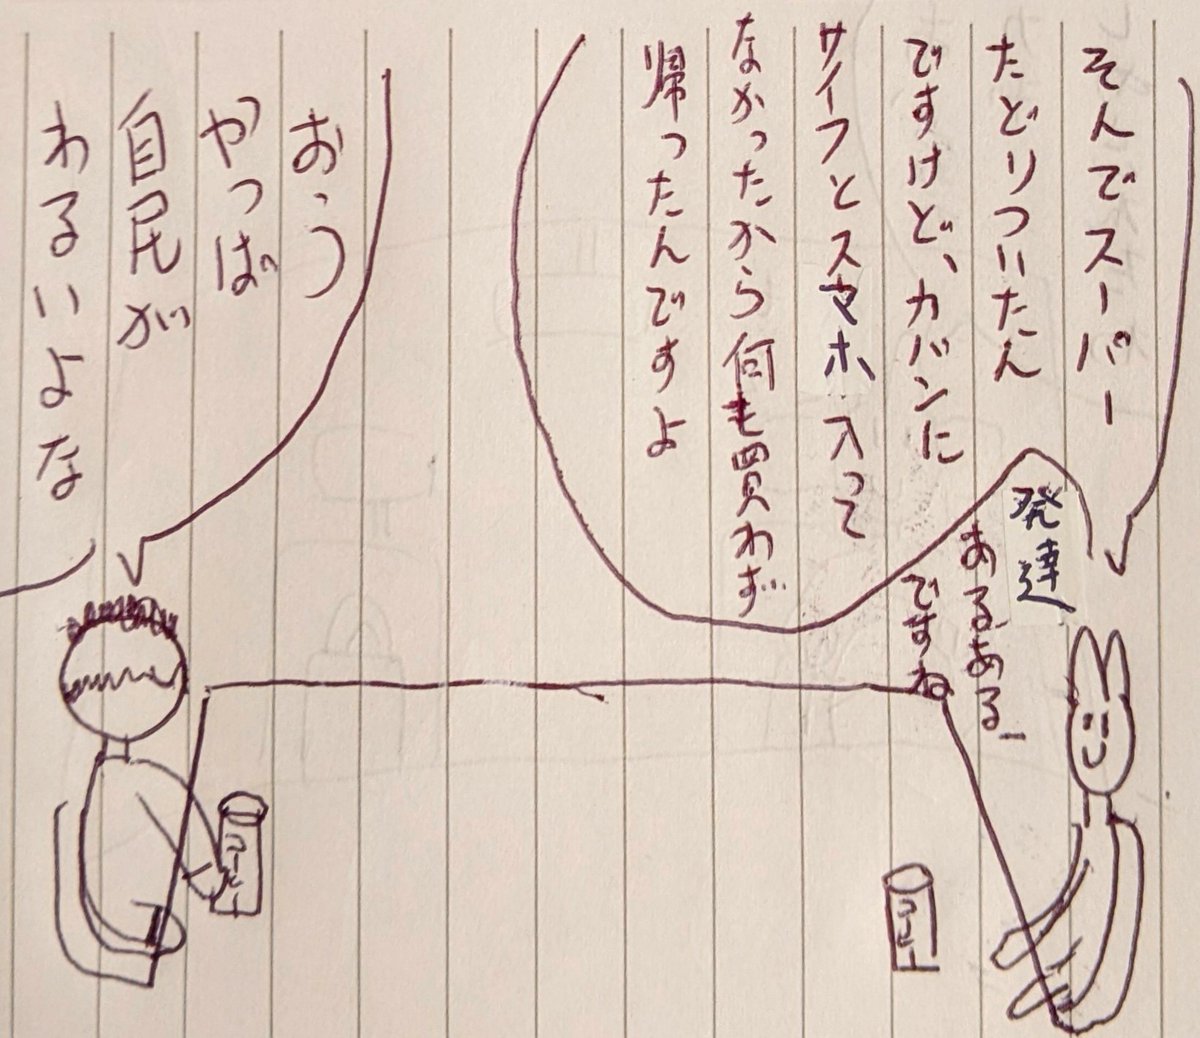 そんでスーパー
たどりついたん
ですけど、カバンに
サイフとスマホ入って
なかったから何も買わず
帰ったんですよ
発達
あるある
ですね
おう
やっぱ
自民が
わるいよな
コーヒー